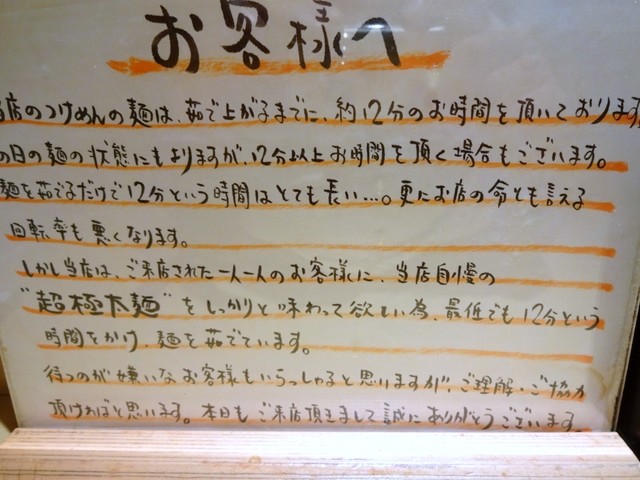 お客様へ
当店のつけめんの麺は、茹で上がるまでに、約12分のお時間を頂いております
の日の麺の状態にもよりますが、12分以上お時間を頂く場合もございます。
麺を茹でるだけで12分という時間はとても長い…。更にお店の命とも言える
回転率も悪くなります。
しかし当店は、ご来店された一人一人のお客様に、当店自慢の
"超極太麺"をしっかりと味わって欲しい為、最低でも12分という
時間をかけ、麺を茹でています。
待つのが嫌いなお客様もいらっしゃると思いますが、ご理解・ご協力
頂ければと思います。本日もご来店頂きまして誠にありがとうございます